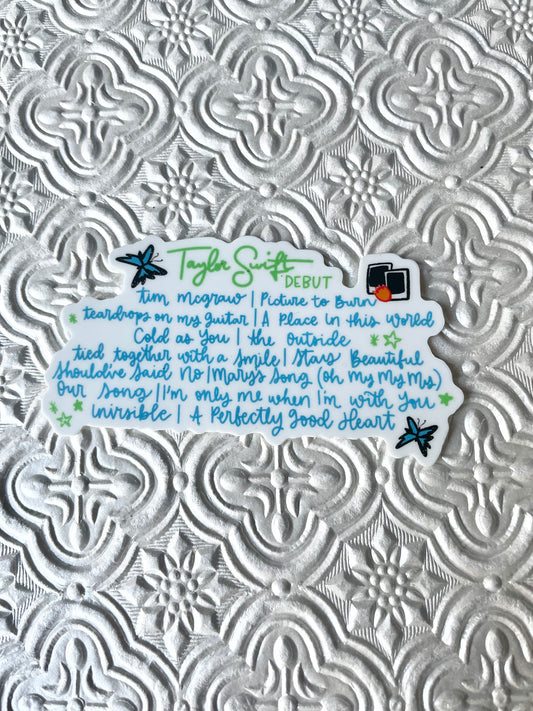 Taylor Swift
DEBUT
tim mcgraw | Picture to Burn
teardrops on my guitar | A Place in this World
Cold as You | the outside
tied together with a smile | Stay Beautiful
Should've Said No | Mary's Song (Oh My My My)
Our Song | I'm only me when I'm with You
invisible | A Perfectly Good Heart